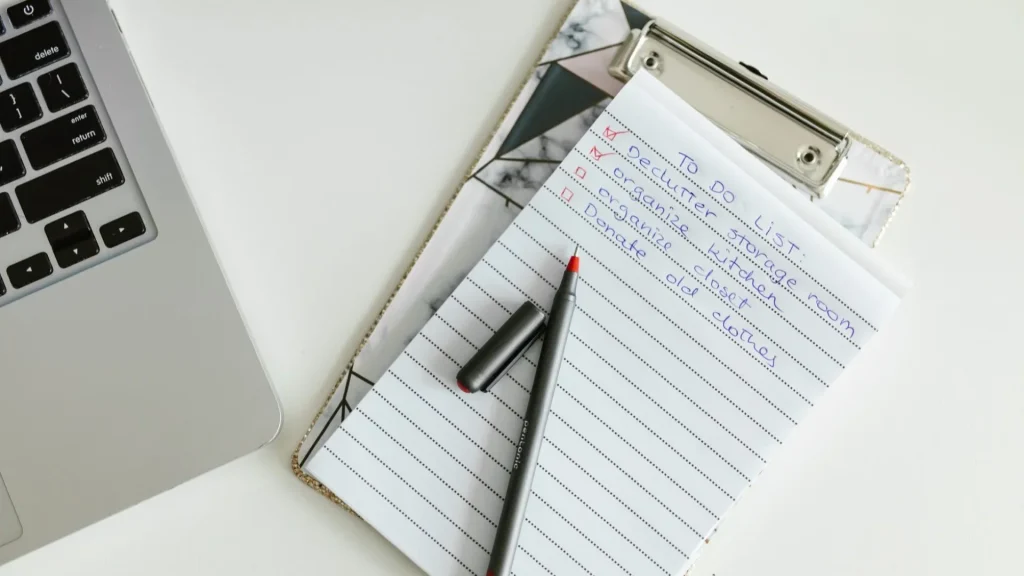 delete
enter
return
shift
TO DO LIST:
Declutter storage room
organize kitchen
organize closet
Donate old clothes
centropen